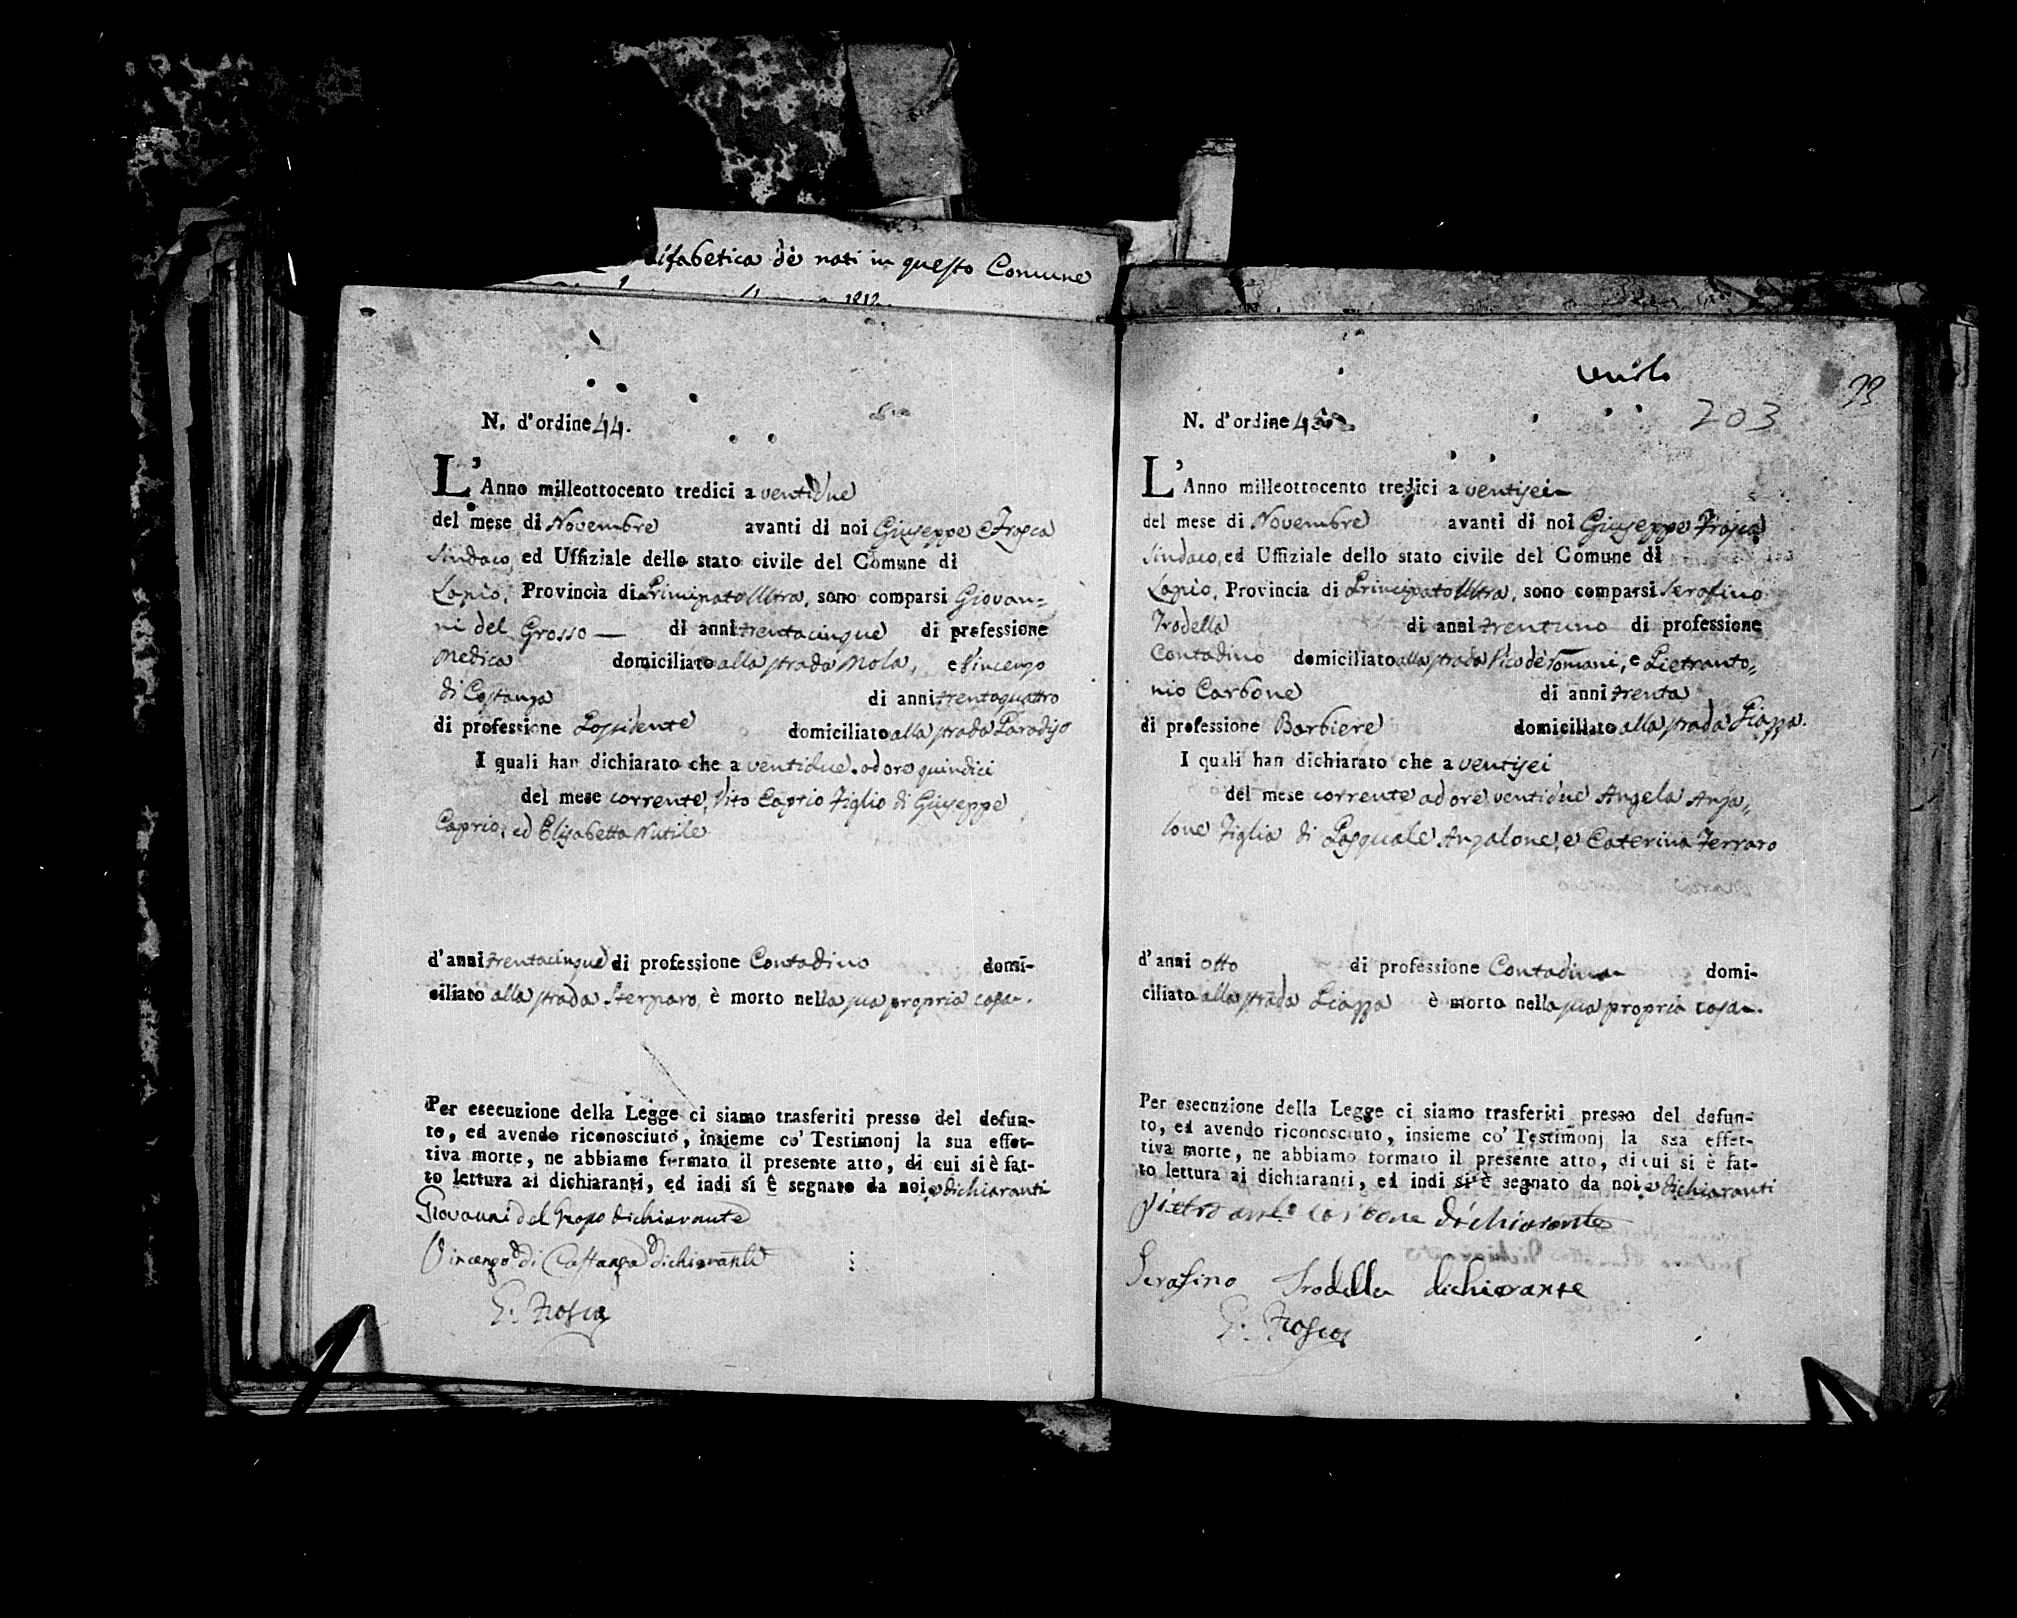 alfabetica de nati in questo Comune
1812.
N. d'ordine 44.
L'Anno milleottocento tredici a ventidue
del mese di Novembre avanti di noi Giuseppe Frosca
Sindaco, ed Uffiziale dello stato civile del Comune di
Lapio, Provincia di Principato Ultra, sono comparsi Giovan=
ni del Grosso — di anni trentacinque di professione
Medico domiciliato alla strada Mola, e Vincenzo
di Costanza di anni trentaquattro
di professione Possidente domiciliato alla strada Paradiso
I quali han dichiarato che a ventidue. ad ore quindici
del mese corrente, Vito Caprio Figlio di Giuseppe
Caprio, ed Elisabetta Nutile
d'anni trentacinque di professione Contadino domi-
ciliato alla strada, è morto nella sua propria casa.
Per esecuzione della Legge ci siamo trasferiti presso del defun-
to, ed avendo riconosciuto, insieme co' Testimonj la sua effet-
tiva morte, ne abbiamo formato il presente atto, di cui si è fat-
to lettura ai dichiaranti, ed indi si è segnato da noi, e dichiaranti
Giovanni del Grosso dichiarante
Vincenzo di Costanza dichiarante
G. Frosca
93
203
N. d'ordine 45
L'Anno milleottocento tredici a ventisei
del mese di Novembre avanti di noi Giuseppe Frosca
Sindaco, ed Uffiziale dello stato civile del Comune di
Lapio, Provincia di Principato Ultra, sono comparsi Serafino
Trodella di anni trentuno di professione
Contadino domiciliato alla strada Vico de Romani, e Pietranto=
nio Carbone di anni trenta
di professione Barbiere domiciliato alla strada Piazza.
I quali han dichiarato che a ventisei
del mese corrente ad ore ventidue Angela Anza=
lone Figlia di Pasquale Anzalone, e Caterina Ferraro
d'anni otto di professione Contadina domi-
ciliato alla strada Piazza è morto nella sua propria casa.
Per esecuzione della Legge ci siamo trasferiti presso del defun-
to, ed avendo riconosciuto, insieme co' Testimonj la sua effet-
tiva morte, ne abbiamo formato il presente atto, di cui si è fat-
to lettura ai dichiaranti, ed indi si è segnato da noi, e dichiaranti
Pietro Carbone dichiarante
Serafino Trodella dichiarante
G. Frosca